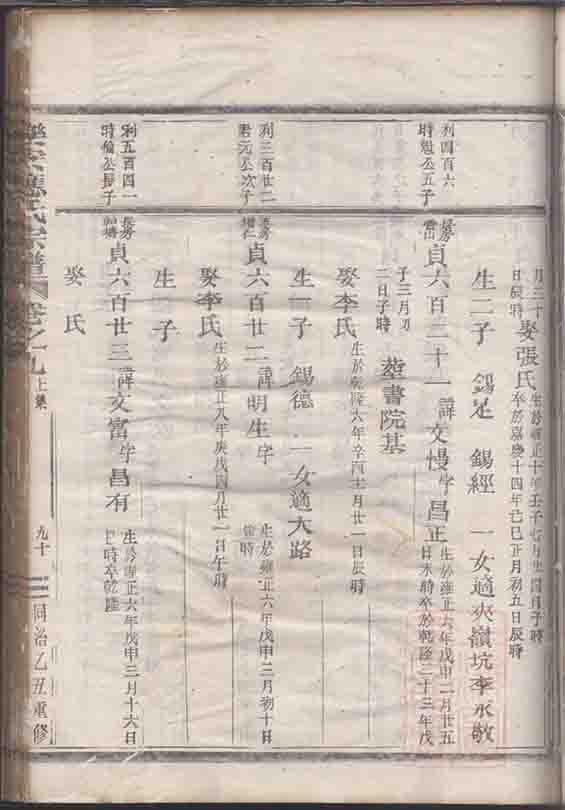 月三十
日辰時
娶張氏
生於雍正十年壬子七月生四日子時
卒於嘉慶十四年己巳正月初五日辰時
生二子 錫足 錫經 一女適夾嶺坑李永敬
利四百六
時魁公五子
長房
貞六百二十一 諱文慢字昌正
生於雍正六年戊申二月廿五
日未時卒於乾隆二十三年戊
子三月
二日子時
葬書院基
娶李氏
生於乾隆六年辛酉十月廿一日辰時
生一子 錫德 一女適大路
利三百廿二
君元公次子
長房
貞六百廿二 諱明生字
生於雍正六年戊申三月初十日
時
娶李氏
生於雍正八年庚戌四月廿一日午時
生一子
利五百四一
時倫公長子
長房
貞六百廿三 諱文富字昌有
生於雍正六年戊申三月十六日
時卒乾隆
娶 氏
應氏宗譜
卷之九上集
九十
同治乙丑重修